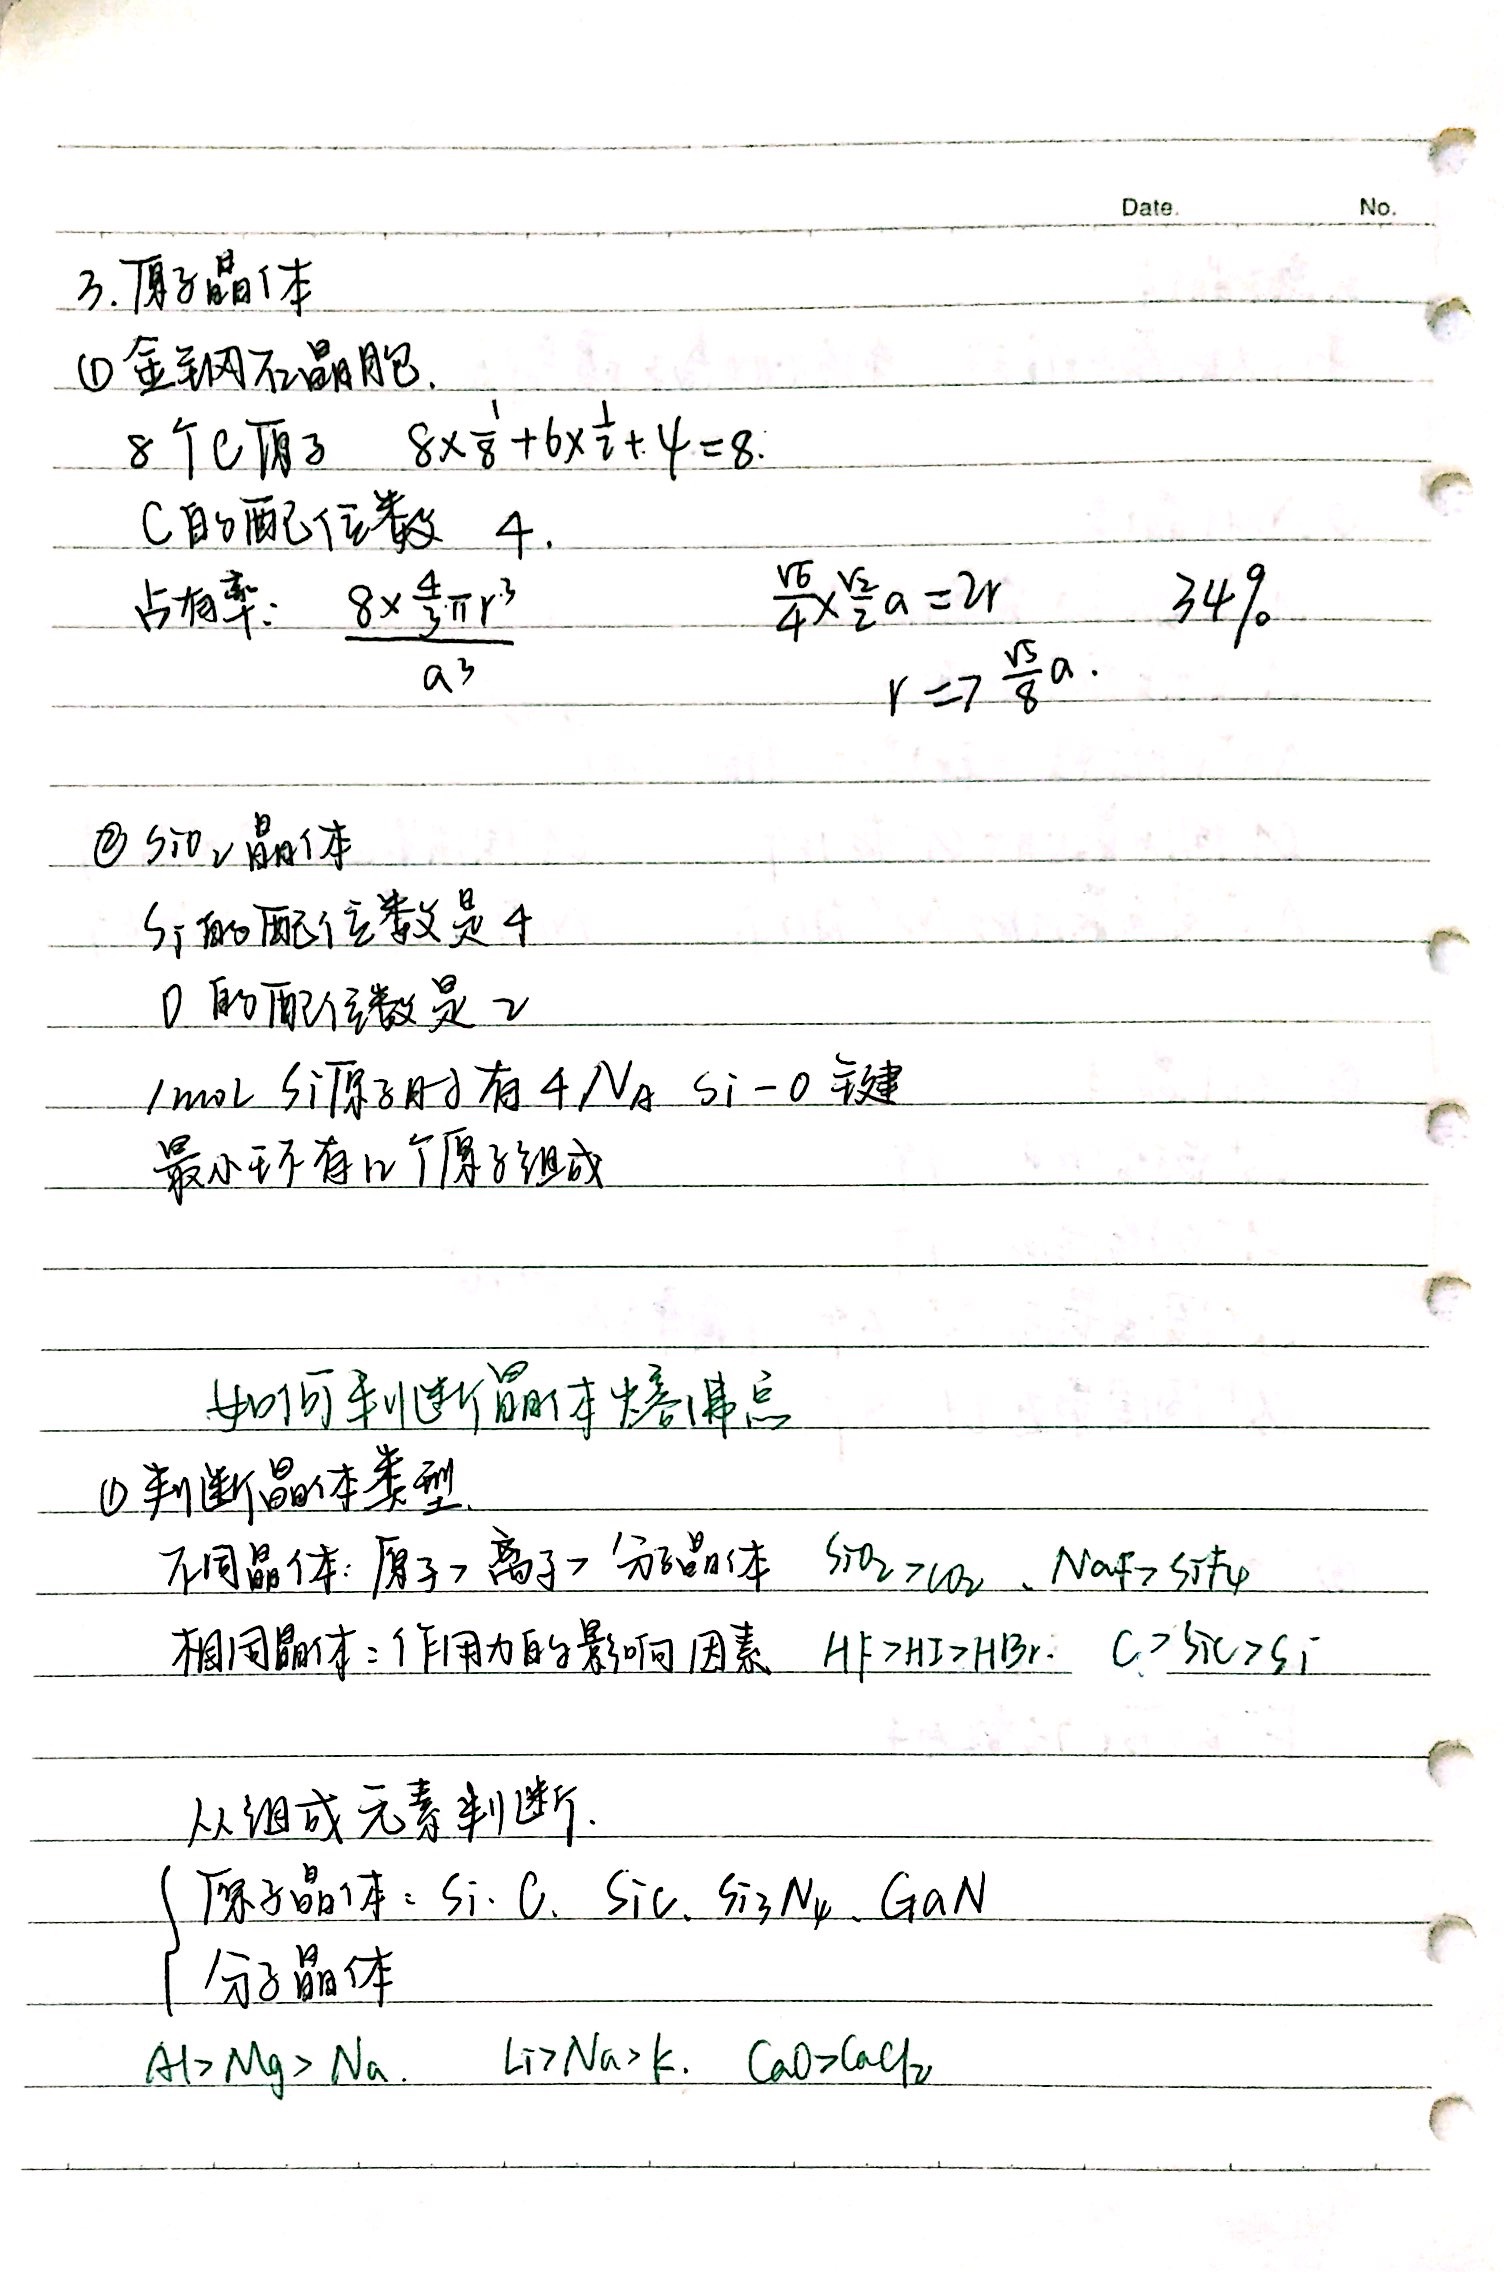 Date. No.
3. 原子晶体
① 金刚石晶胞.
8个C原子 8×1/8+6×1/2+4=8.
C的配位数 4.
占有率: (8×4/3πr³)/a³ √6/4×√2/2a=2r 34%
r=>√3/8a.
② SiO₂晶体
Si的配位数是4
O的配位数是2
1mol Si原子时有4NA Si-O键
最小环有12个原子组成
如何判断晶体熔沸点
① 判断晶体类型.
不同晶体: 原子>离子>分子晶体 SiO₂>CO₂、NaF>SiF₄
相同晶体: 作用力的影响因素 HF>HI>HBr. C>SiC>Si
从组成元素判断.
原子晶体: Si. C、SiC、Si₃N₄、GaN
分子晶体
Al>Mg>Na. Li>Na>K. CaO>CaCl₂